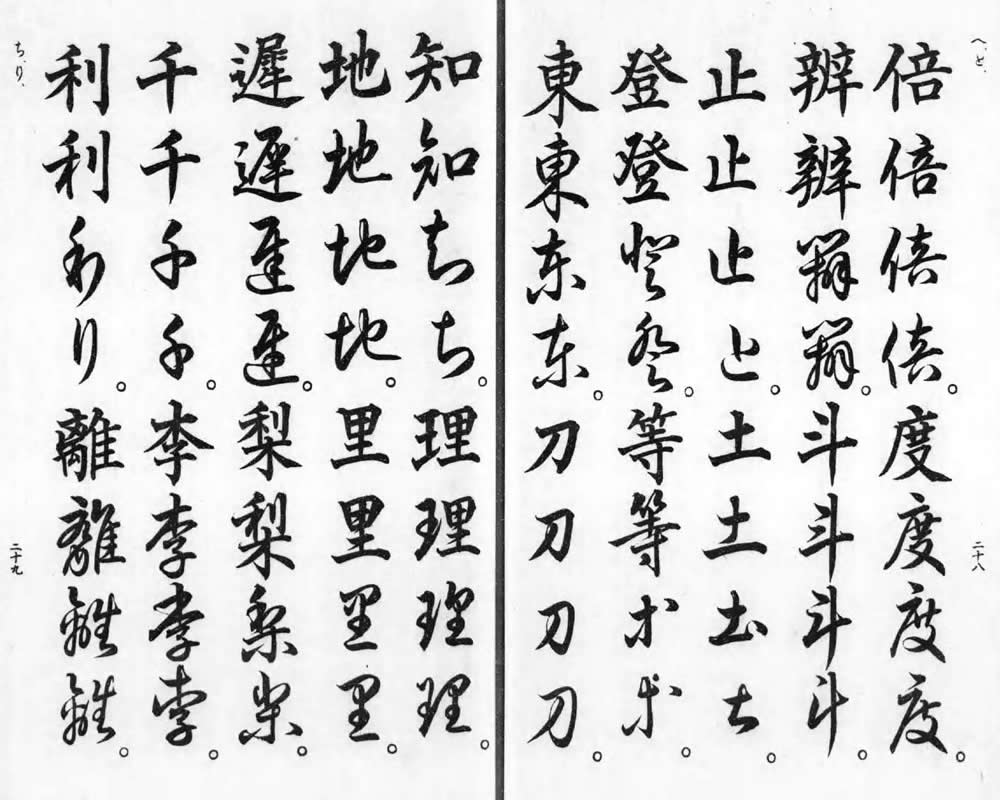 へ、と、
倍倍倍倍。度度度度。
辨辨辨辨。斗斗斗斗。
止止止と。土土土土。
登登登登。等等等等。
東東东东。刀刀刀刀。
二十八
知知知ち。理理理理。
地地地地。里里里里。
遲遲遲遲。梨梨梨梨。
千千千千。李李李李。
利利利り。離離離離。
ち、り、
二十九